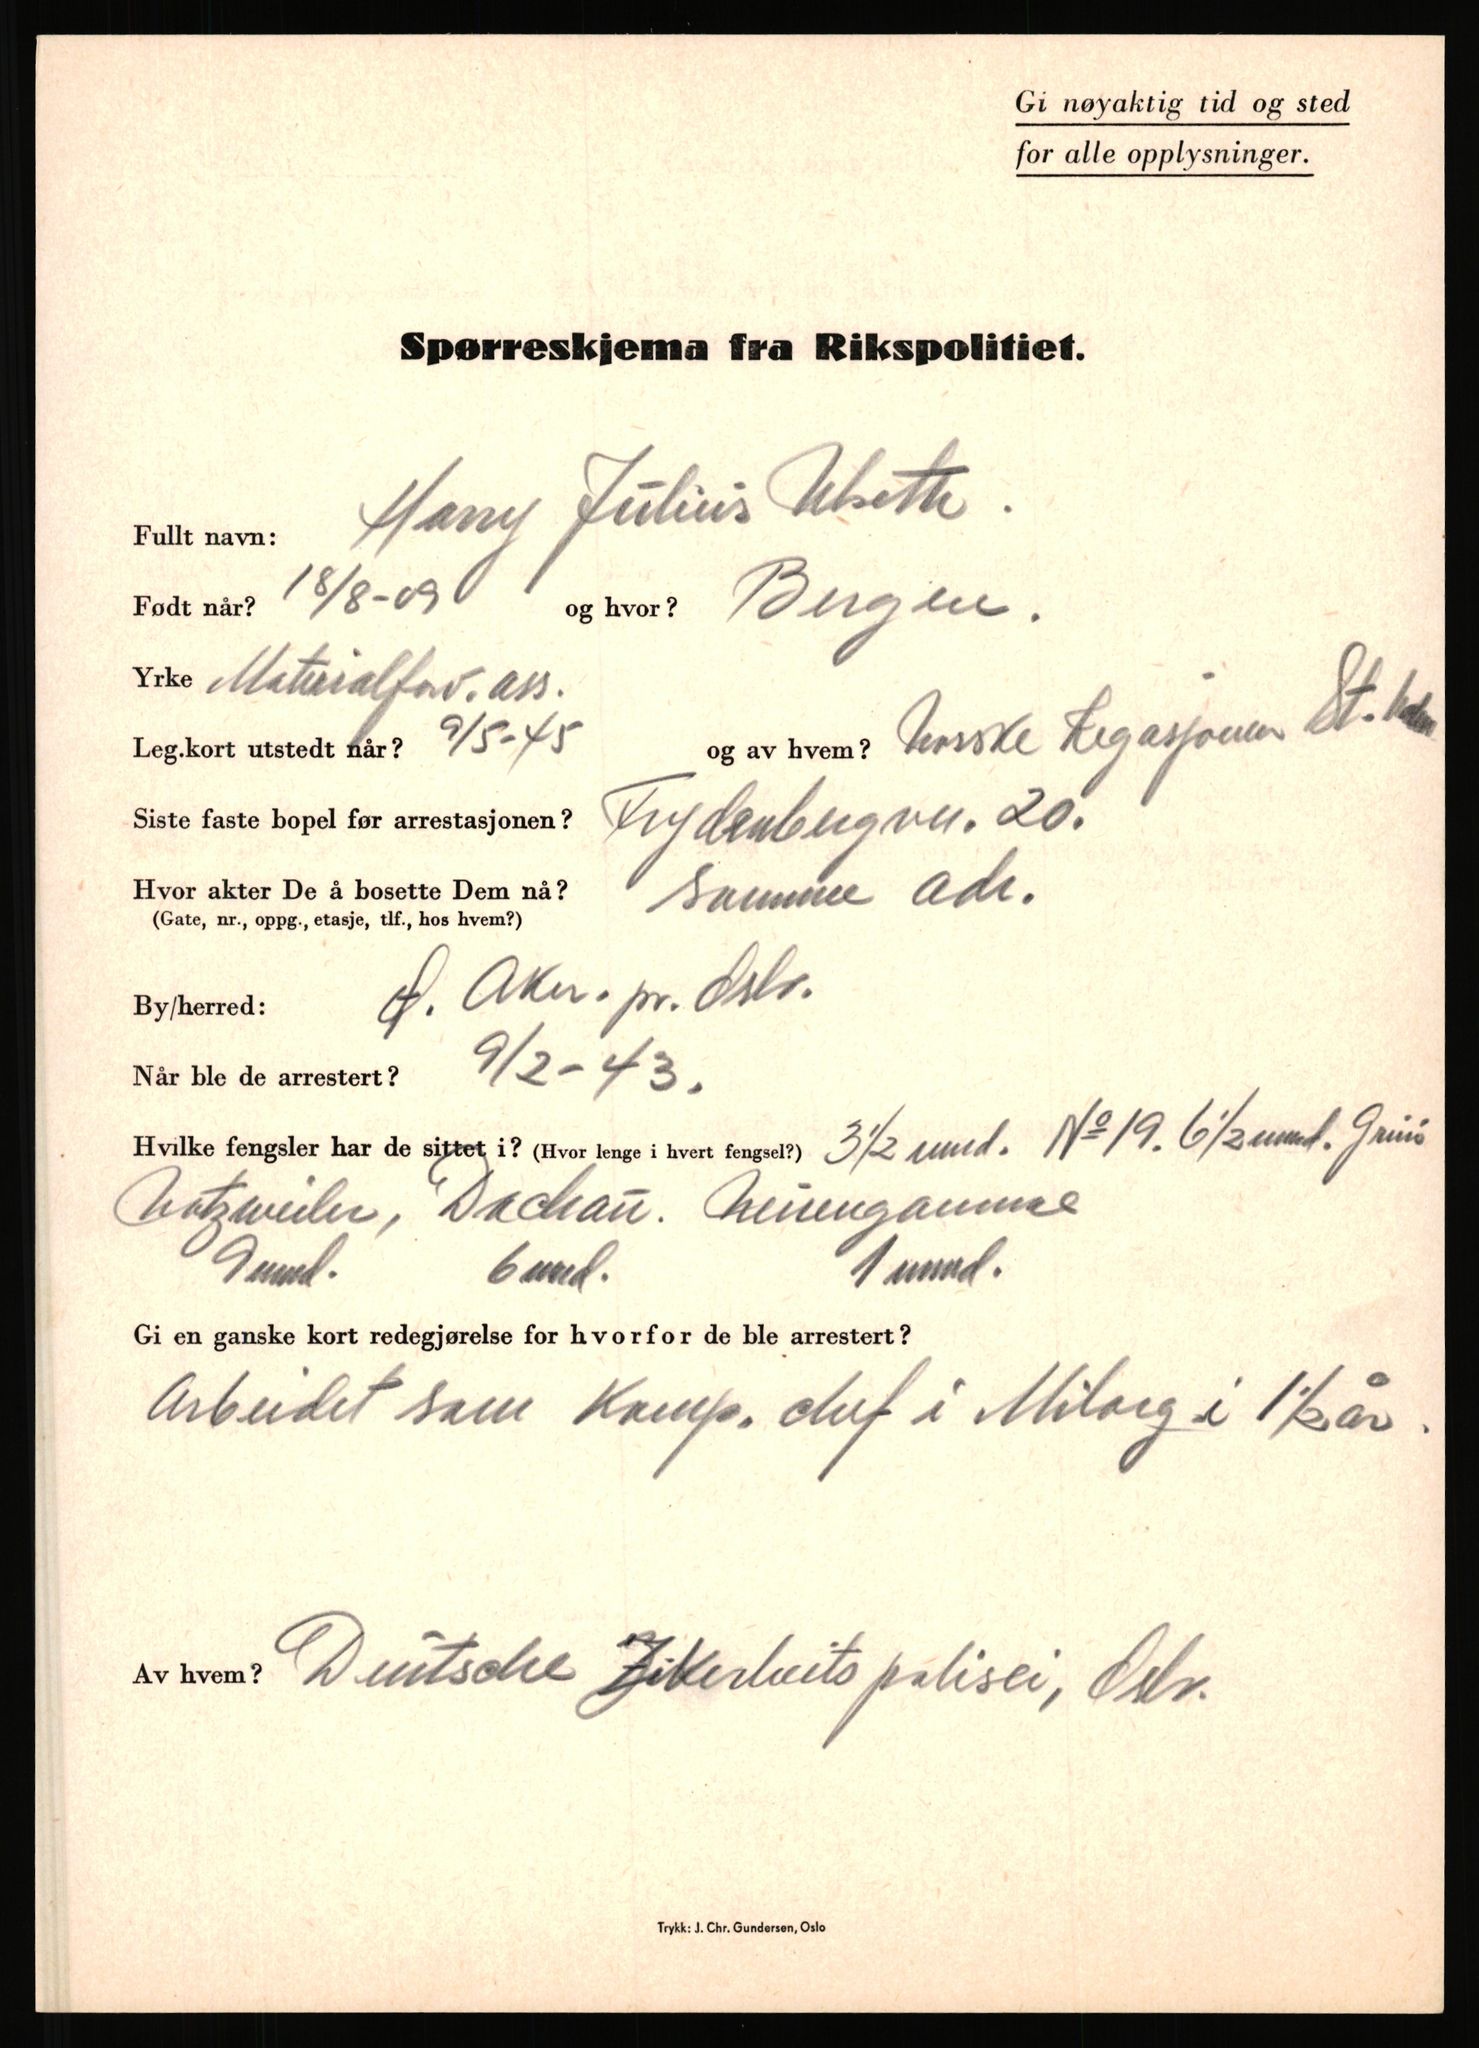 Gi nøyaktig tid og sted
for alle opplysninger.
Spørreskjema fra Rikspolitiet.
Fullt navn: Harry Julius Ulseth.
Født når? 18/8-09 og hvor? Bergen.
Yrke Materialforv. ass.
Leg.kort utstedt når? 9/5-45 og av hvem? Norske Legasjonen St.holm
Siste faste bopel før arrestasjonen? Frydenbergvn. 20.
Hvor akter De å bosette Dem nå? samme adr.
(Gate, nr., oppg., etasje, tlf., hos hvem?)
By/herred: Ø. Aker. pr. Oslo.
Når ble de arrestert? 9/2-43.
Hvilke fengsler har de sittet i? (Hvor lenge i hvert fengsel?) 3½ mnd. No 19. 6½ mnd. Grini
Natzweiler, Dachau. Neuengamme
9 mnd. 6 mnd. 1 mnd.
Gi en ganske kort redegjørelse for hvorfor de ble arrestert?
Arbeidet som komp. chef i Milorg i 1½ år.
Av hvem? Deutsche Zikerheitspolisei, Oslo.
Trykk: J. Chr. Gundersen, Oslo